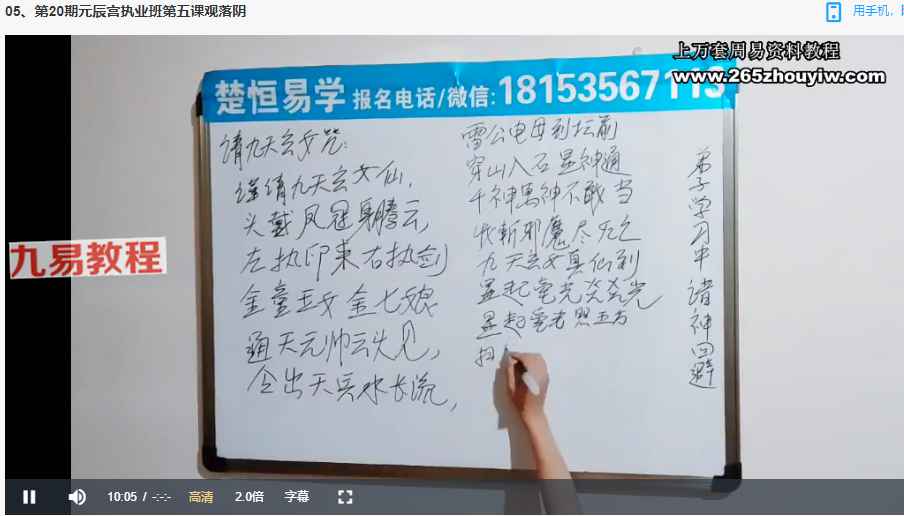 05、第20期元辰宫执业班第五课观落阴
用手机,
上万套周易资料教程
www.265zhouyiw.com
楚恒易学 报名电话/微信:18153567113
九易教程
请九天玄女咒:
谨请九天玄女仙,
头戴凤冠身腾云,
左执印来右执剑
金童玉女金七娘
通天元帅云头见,
令出天兵水长流,
雷公电母到坛前
穿山入石显神通
千神萬神不敢当
斩邪魔尽死亡
九天玄女真仙到
显起毫光炎炎光
显起毫光照五方
扫
弟子学习中 诸神回避
10:05 / -:-:-
高清
2.0倍
字幕